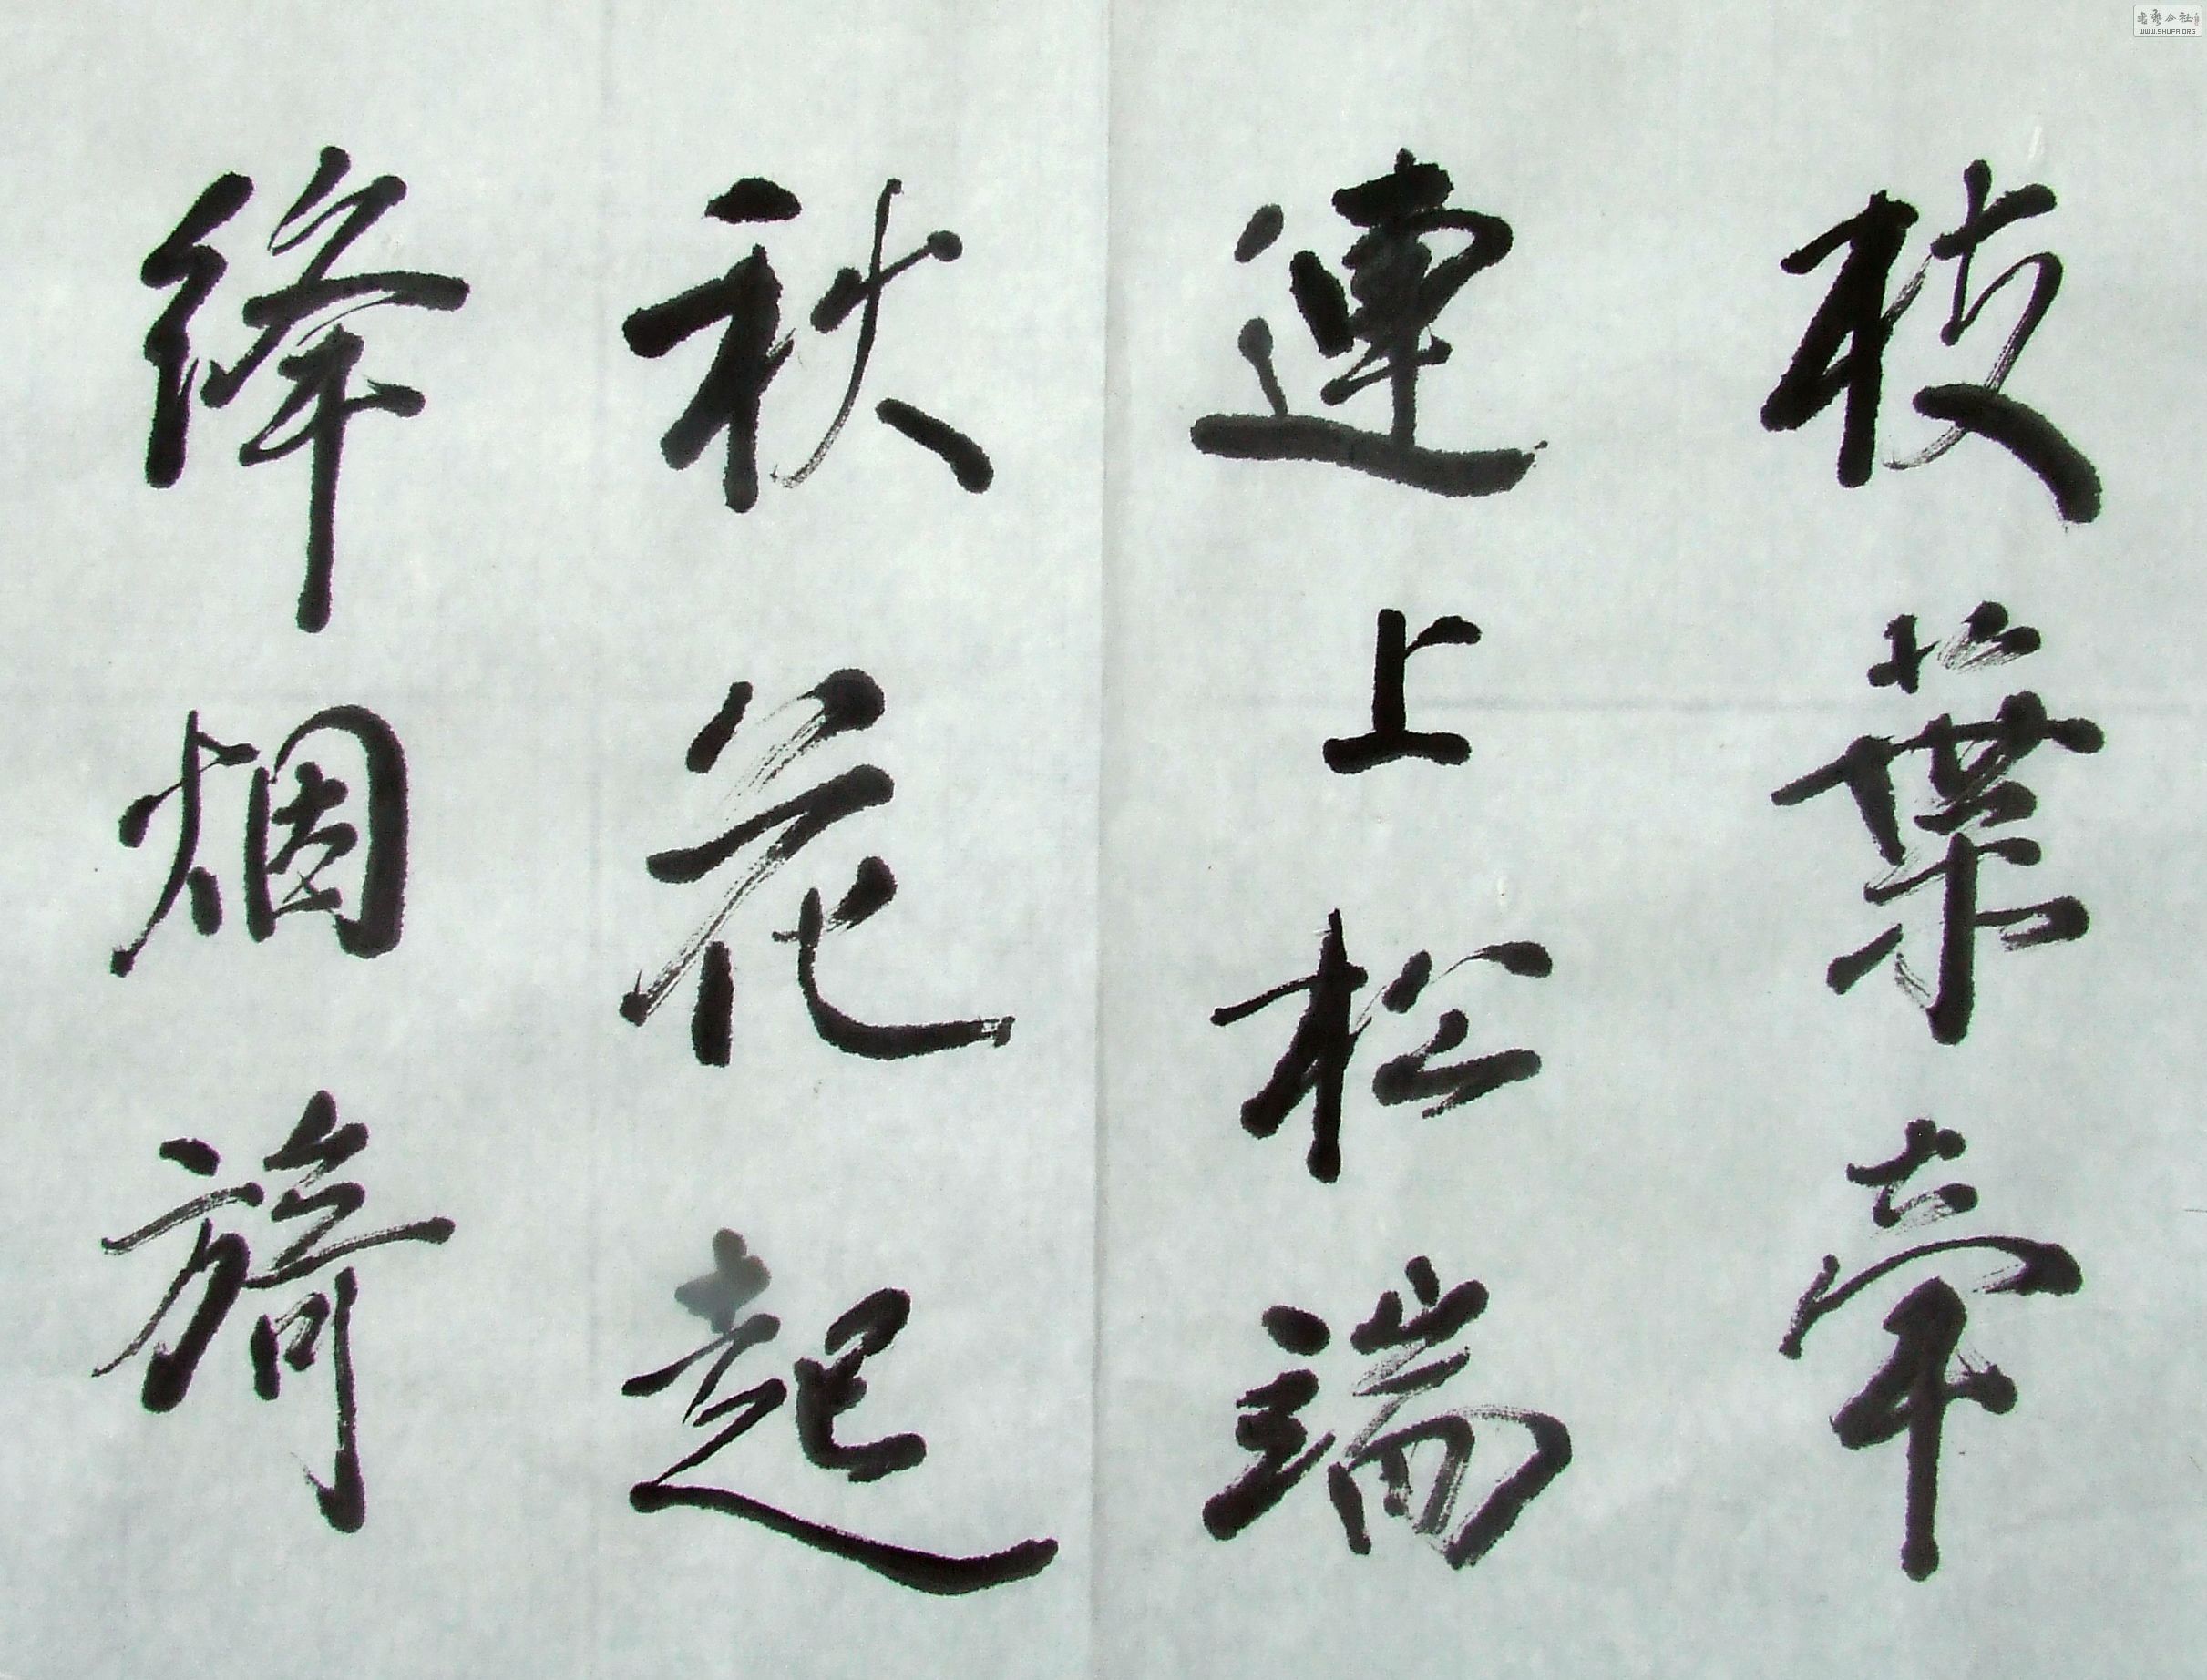 枝葉牵
連上松端
秋花起
絳烟旖
書藝公社
WWW.SHUFA.ORG